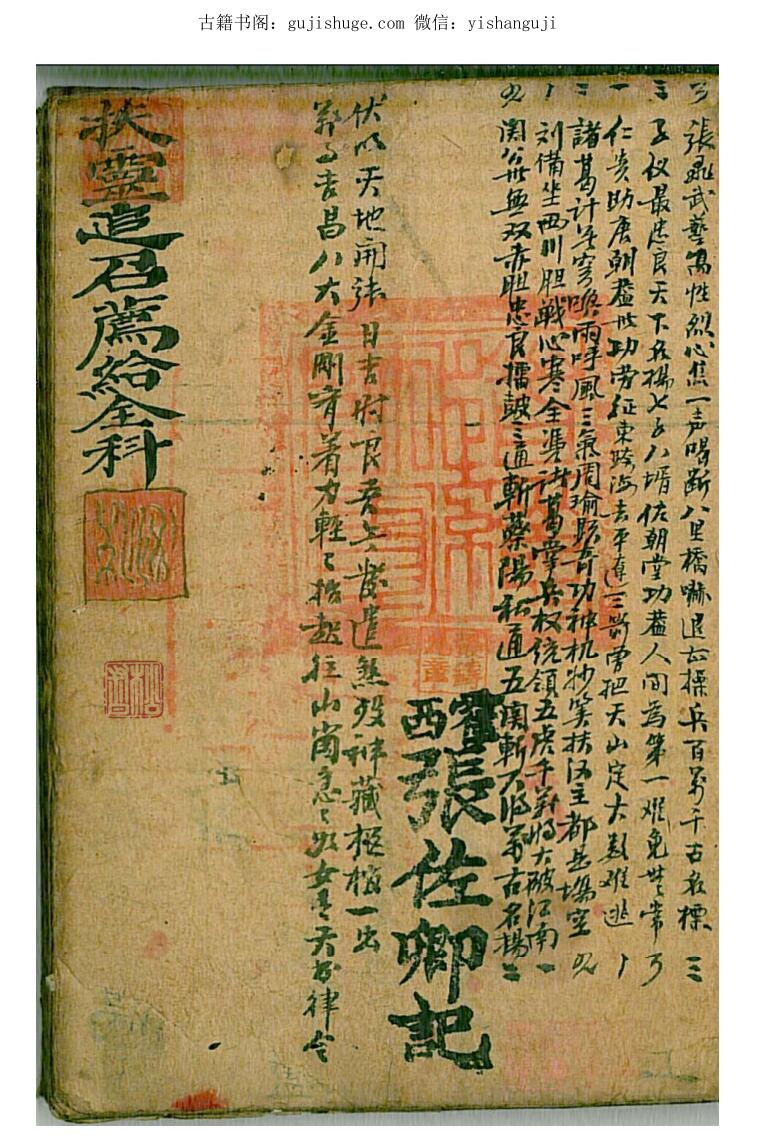 古籍书阁：gujishuge.com 微信：yishanguji
張飛武藝高性烈心焦一声喝断八里橋嚇退曹操兵百万千古名標三
子仪最忠良天下名揚七子八壻佐朝堂功蓋人间為第一难免無常
仁贵助唐朝蓋世功劳征東跨海去平遼三箭曾把天山定大数难逃
諸葛计无穷唤雨呼風三氣周瑜取奇功神机妙算扶汉主都是塲空
刘備坐西川胆戰心寒全凭诸葛掌兵权统領五虎千員將大破江南一
関公世無双赤胆忠良擂鼓三通斬蔡陽私通五関斬六將万古名揚
西
張佐卿記
伏以天地開張日吉时良吾今發遣煞殁神藏柩棺一出
万事吉昌八大金剛齊着力軽々抬起往山崗急々如女青天書律令
扶靈追召薦給全科